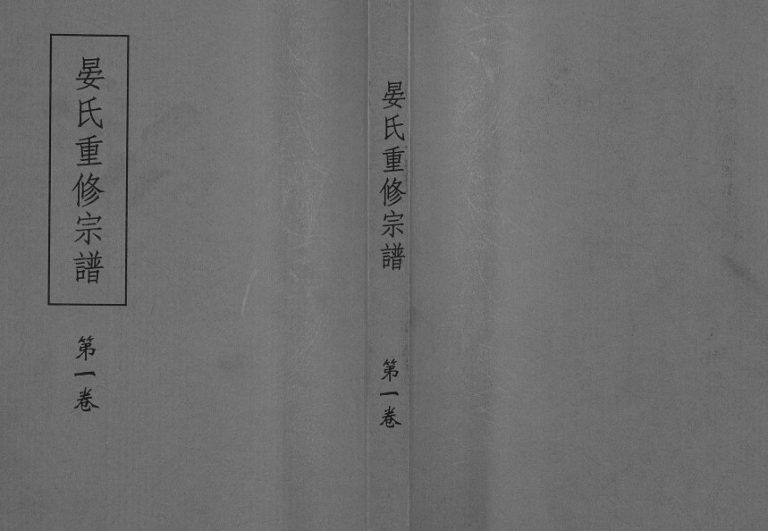 晏氏重修宗譜
第一卷
晏氏重修宗譜
第一卷